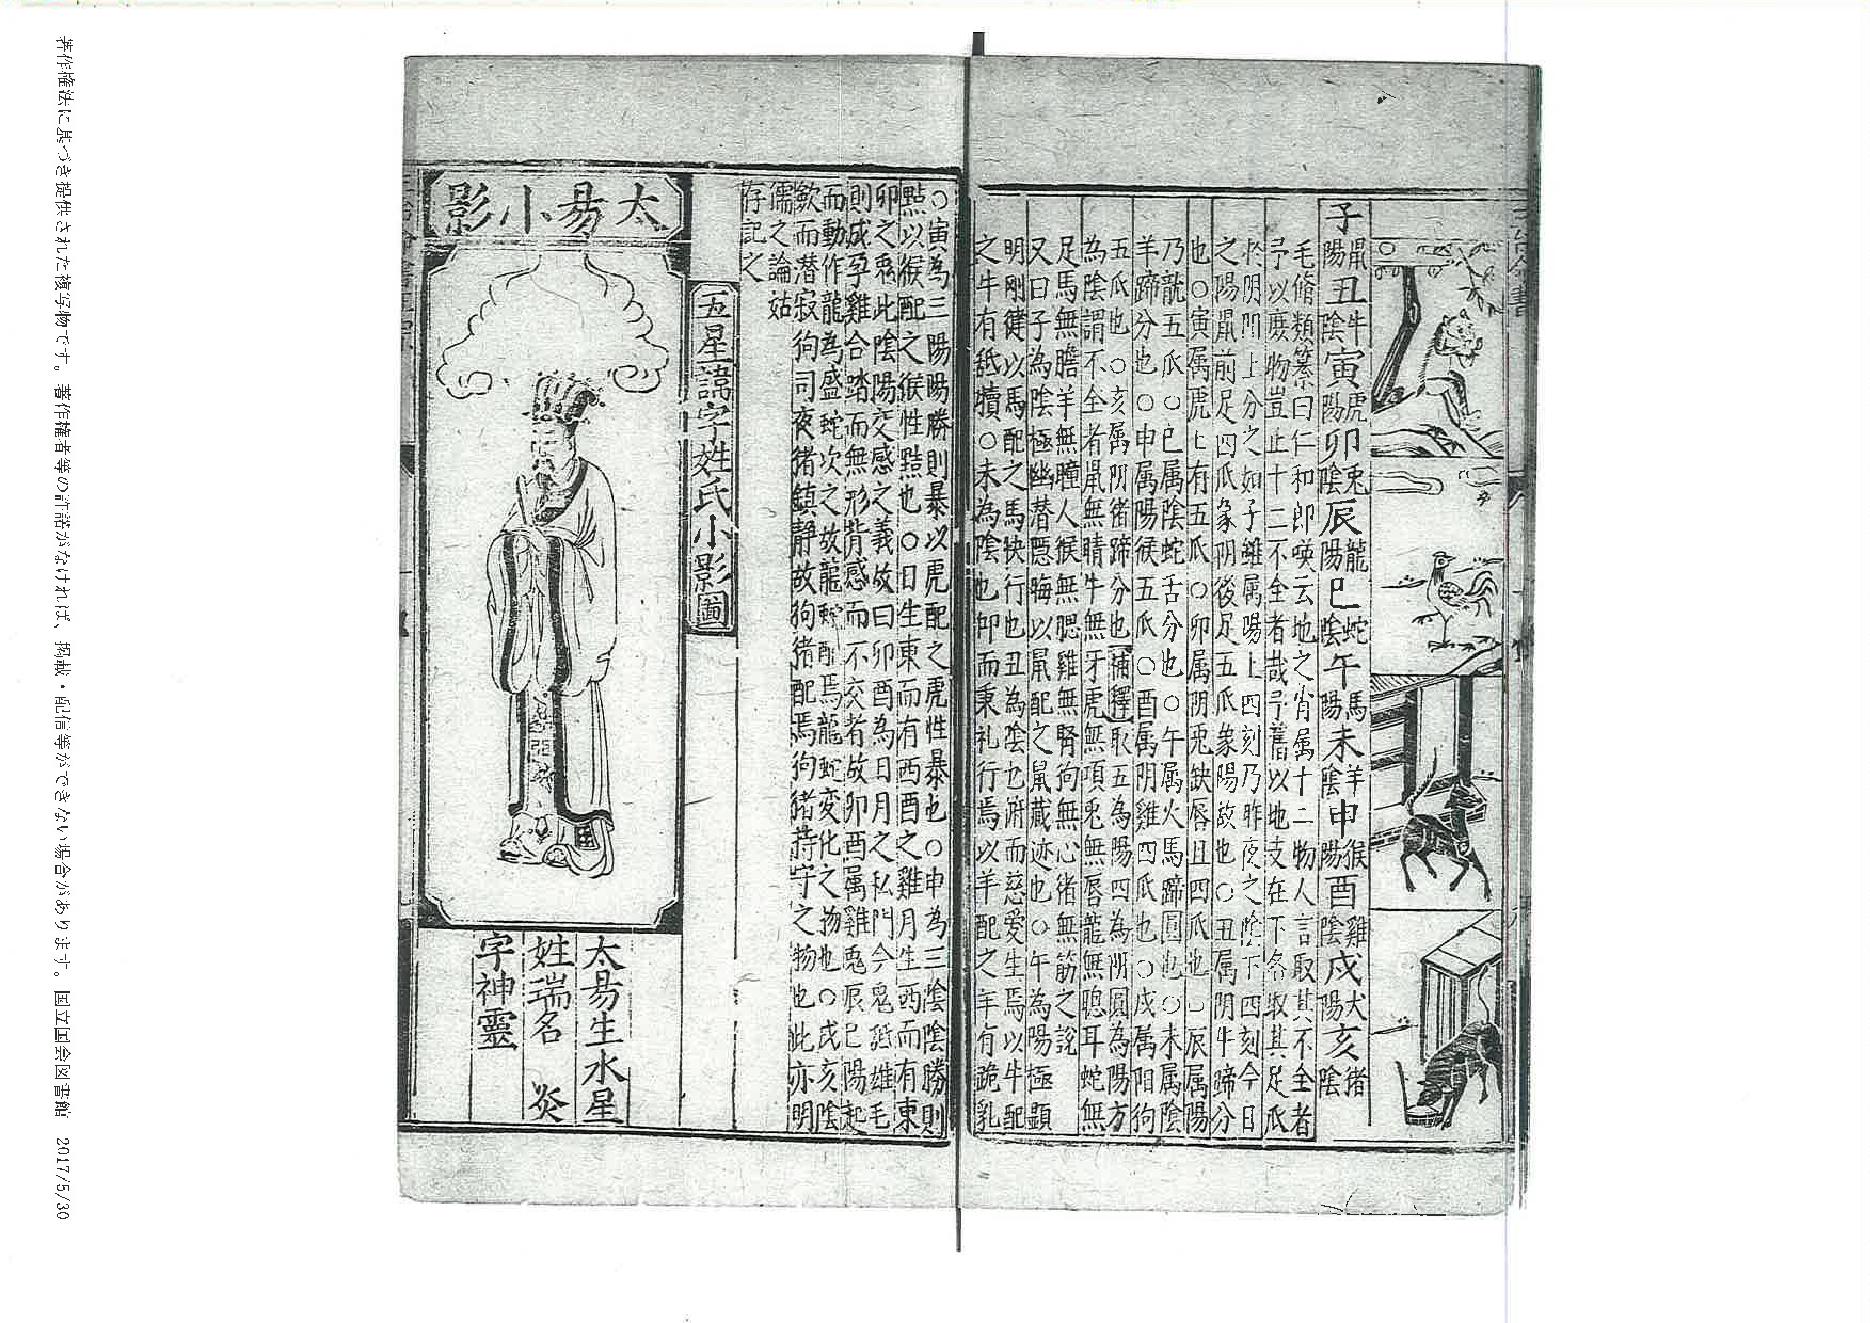 子鼠陽丑牛陰寅虎陽卯兎陰辰龍陽巳蛇陰午馬陽未羊陰申猴陽酉雞陰戌犬陽亥猪陰
毛脩類纂曰仁和郎唊云地之肖属十二物人言取其不全者
予以庶物豈止十二不全者哉予舊以地支在下各取其足爪
於阴阳上分之如子雖属陽上四刻乃昨夜之陰下四刻今日
之陽鼠前足四爪象阴後足五爪象陽故也○丑属阴牛蹄分
也○寅属虎上有五爪○卯属阴兎缺唇且四爪也○辰属陽
乃龍五爪○巳属陰蛇舌分也○午属火馬蹄圓也○未属陰
羊蹄分也○申属陽猴五爪○酉属阴雞四爪也○戌属阳狗
五爪也○亥属阴猪蹄分也補釋取五為陽四為阴圓為陽方
為陰謂不全者鼠無睛牛無牙虎無項兎無唇龍無聰耳蛇無
足馬無膽羊無瞳人猴無腮雞無腎狗無心猪無筋之説
又曰子為陰極幽潜隠晦以鼠配之鼠藏迹也○午為陽極顯
明剛健以馬配之馬快行也丑為陰也俯而慈愛生焉以牛配
之牛有舐犢○未為陰也仰而秉礼行焉以羊配之羊有跪乳
○寅為三陽陽勝則暴以虎配之虎性暴也○申為三陰陰勝則
黠以猴配之猴性黠也○日生東而有西酉之雞月生西而有東
卯之兎此陰陽交感之義故曰卯酉為日月之私門今兎舐雄毛
則成孕雞合踏而無形皆感而不交者故卯酉属雞兎辰巳陽起
而動作龍為盛蛇次之故龍蛇配焉龍蛇変化之物也○戌亥陰
歛而潜寂狗司夜猪鎮静故狗猪配焉狗猪持守之物也此亦明
儒之論姑
存記之
五星諱字姓氏小影圖
太昜小影
太昜生水星
姓瑞名　炎
字神靈
著作権法に基づき提供された複写物です。著作権者等の許諾がなければ、掲載・配信等ができない場合があります。国立国会図書館　2017/5/30